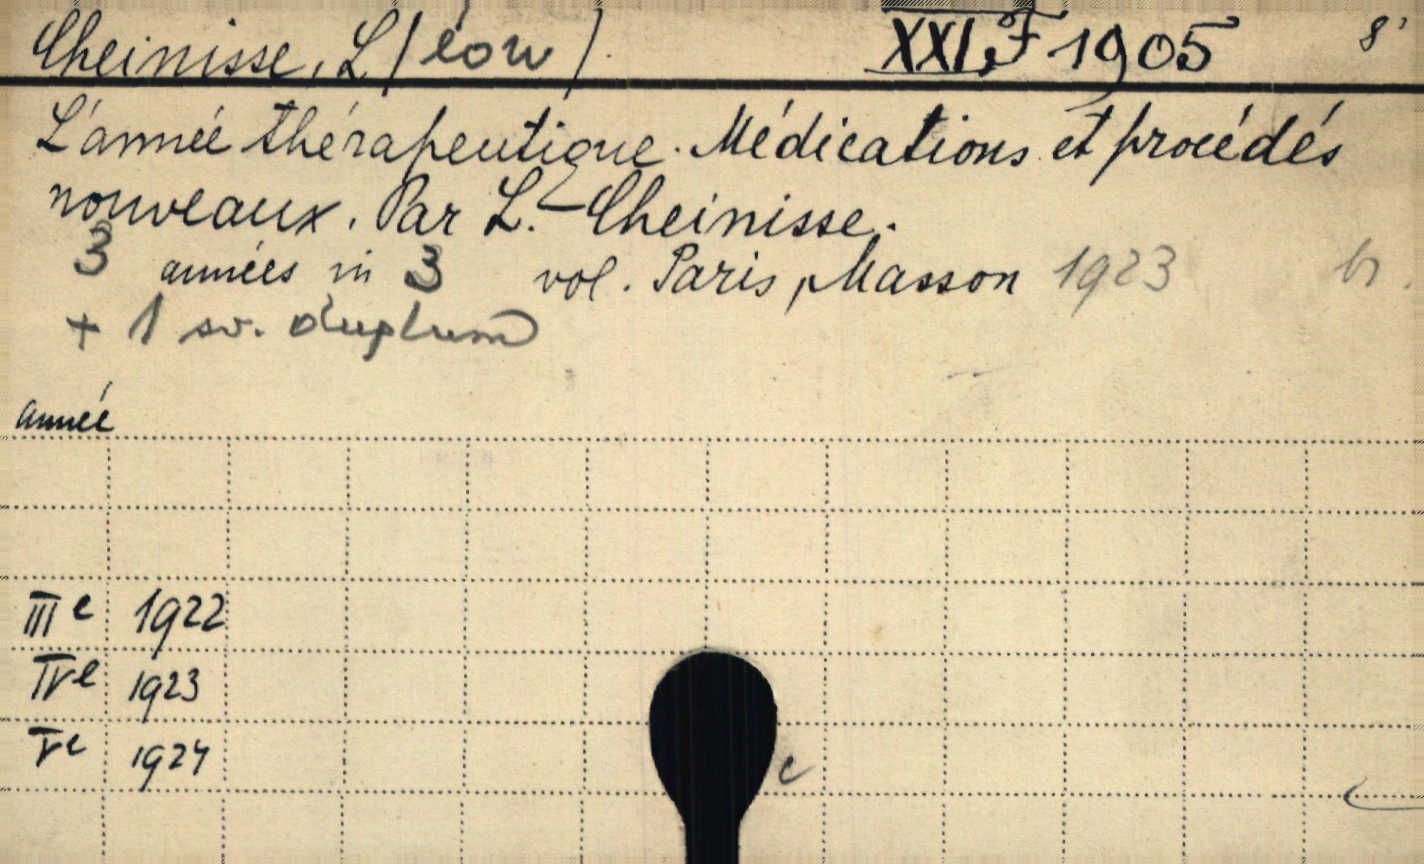 Cheinisse, L(éon). XXI.F 1905 8'
L'année thérapeutique. Médications et procédés
nouveaux. Par L. Cheinisse.
3 années in 3 vol. Paris, Masson 1923 br.
+ 1 sv. duplum
année
IIIe 1922
IVe 1923
Ve 1924
c